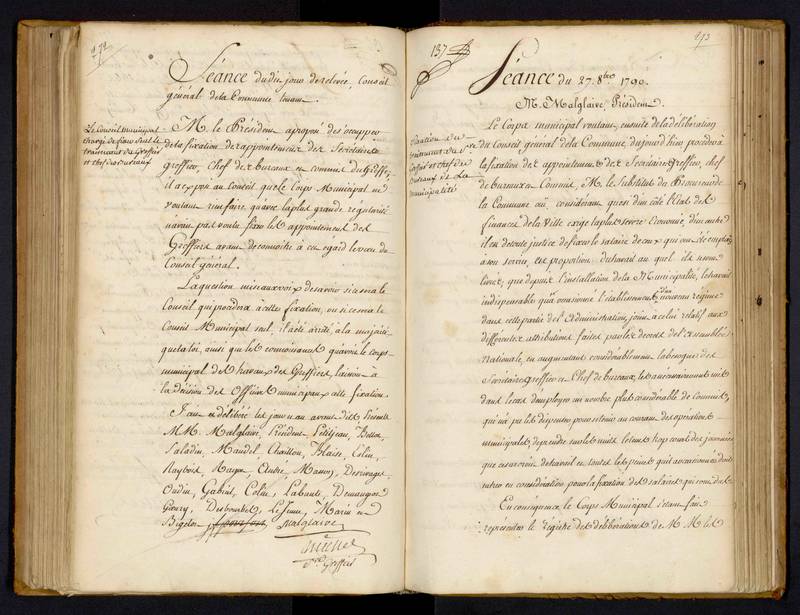 272
Séance du dit jour de relevée, Conseil
général de la Commune tenant.
Le Conseil municipal
chargé de fixer seul le
traitement du Greffier
et chef des bureaux
M. le President a proposé de s'occuper
de la fixation des appointemens des Secrétaire
greffier, Chef des bureaux et commis du Greffe,
il a exposé au Conseil que le Corps Municipal ne
voulant rien faire qu'avec la plus grande régularité
n'avoit pas voulu fixer les appointemens des
Greffiers avant de connoitre à cet égard le vœu du
Conseil général.
La question mise aux voix de savoir si ce sera le
Conseil qui procedera à cette fixation, ou si ce sera le
Conseil Municipal seul, il a été arrêté à la majorité
que la loi, ainsi que les connoissances qu'avoit le corps
municipal des travaux des Greffiers, laissoit à
la décision des Officiers municipaux cette fixation.
Fait et délibéré les jour et an avant dits Présens
MM. Malglaive, Président, Petitjean,
Saladin, Mandel, Chaillon, Blaise, Colin,
André, Desrivages,
Oudin, Gabriel, Colin, Labauté, Demangeot
Desbourbes, Le Jeune, Marin et
Bigelot Malglaive
Secr. Greffier
273
137
Séance du 27. 8bre 1790.
M. Malglaive, Président.
Fixation du
traitement du Sre
Greffier et chef des
bureaux de la
municipalité
Le Corps municipal voulant, ensuite de la délibération
du Conseil général de la Commune, du jour d'hier, procéder à
la fixation des appointemens des Secrétaire Greffier, chef
de bureaux et Commis, M. le Substitut du Procureur de
la Commune ouï, considérant que si d'un côté l'Etat des
finances de la Ville exige la plus sévère Economie, d'un autre
il est de toute justice de fixer le salaire de ceux qui ont été employés
à son service, en proportion du travail au quel ils se sont
livrés; que depuis l'installation de la Municipalité, le travail
indispensable qu'a occasionné l'établissement d'un nouveau régime
dans cette partie de l'Administration, joint à celui relatif aux
différentes attributions faites par les décrets de l'Assemblée
Nationale, en augmentant considérablement la besogne des
Secrétaire Greffier et Chef de bureaux, les a nécessairement mis
dans le cas d'employer un nombre plus considérable de Commis,
qui n'a pu les dispenser pour se tenir au courant des opérations
municipales, de prendre sur les nuits le tems trop court des journées
que ce surcroit de travail et toutes les peines qu'il a occasionnées doivent
entrer en considération pour la fixation des salaires qui sont dus.
En conséquence, le Corps Municipal s'étant fait
représenter le Régistre des délibérations de MM les